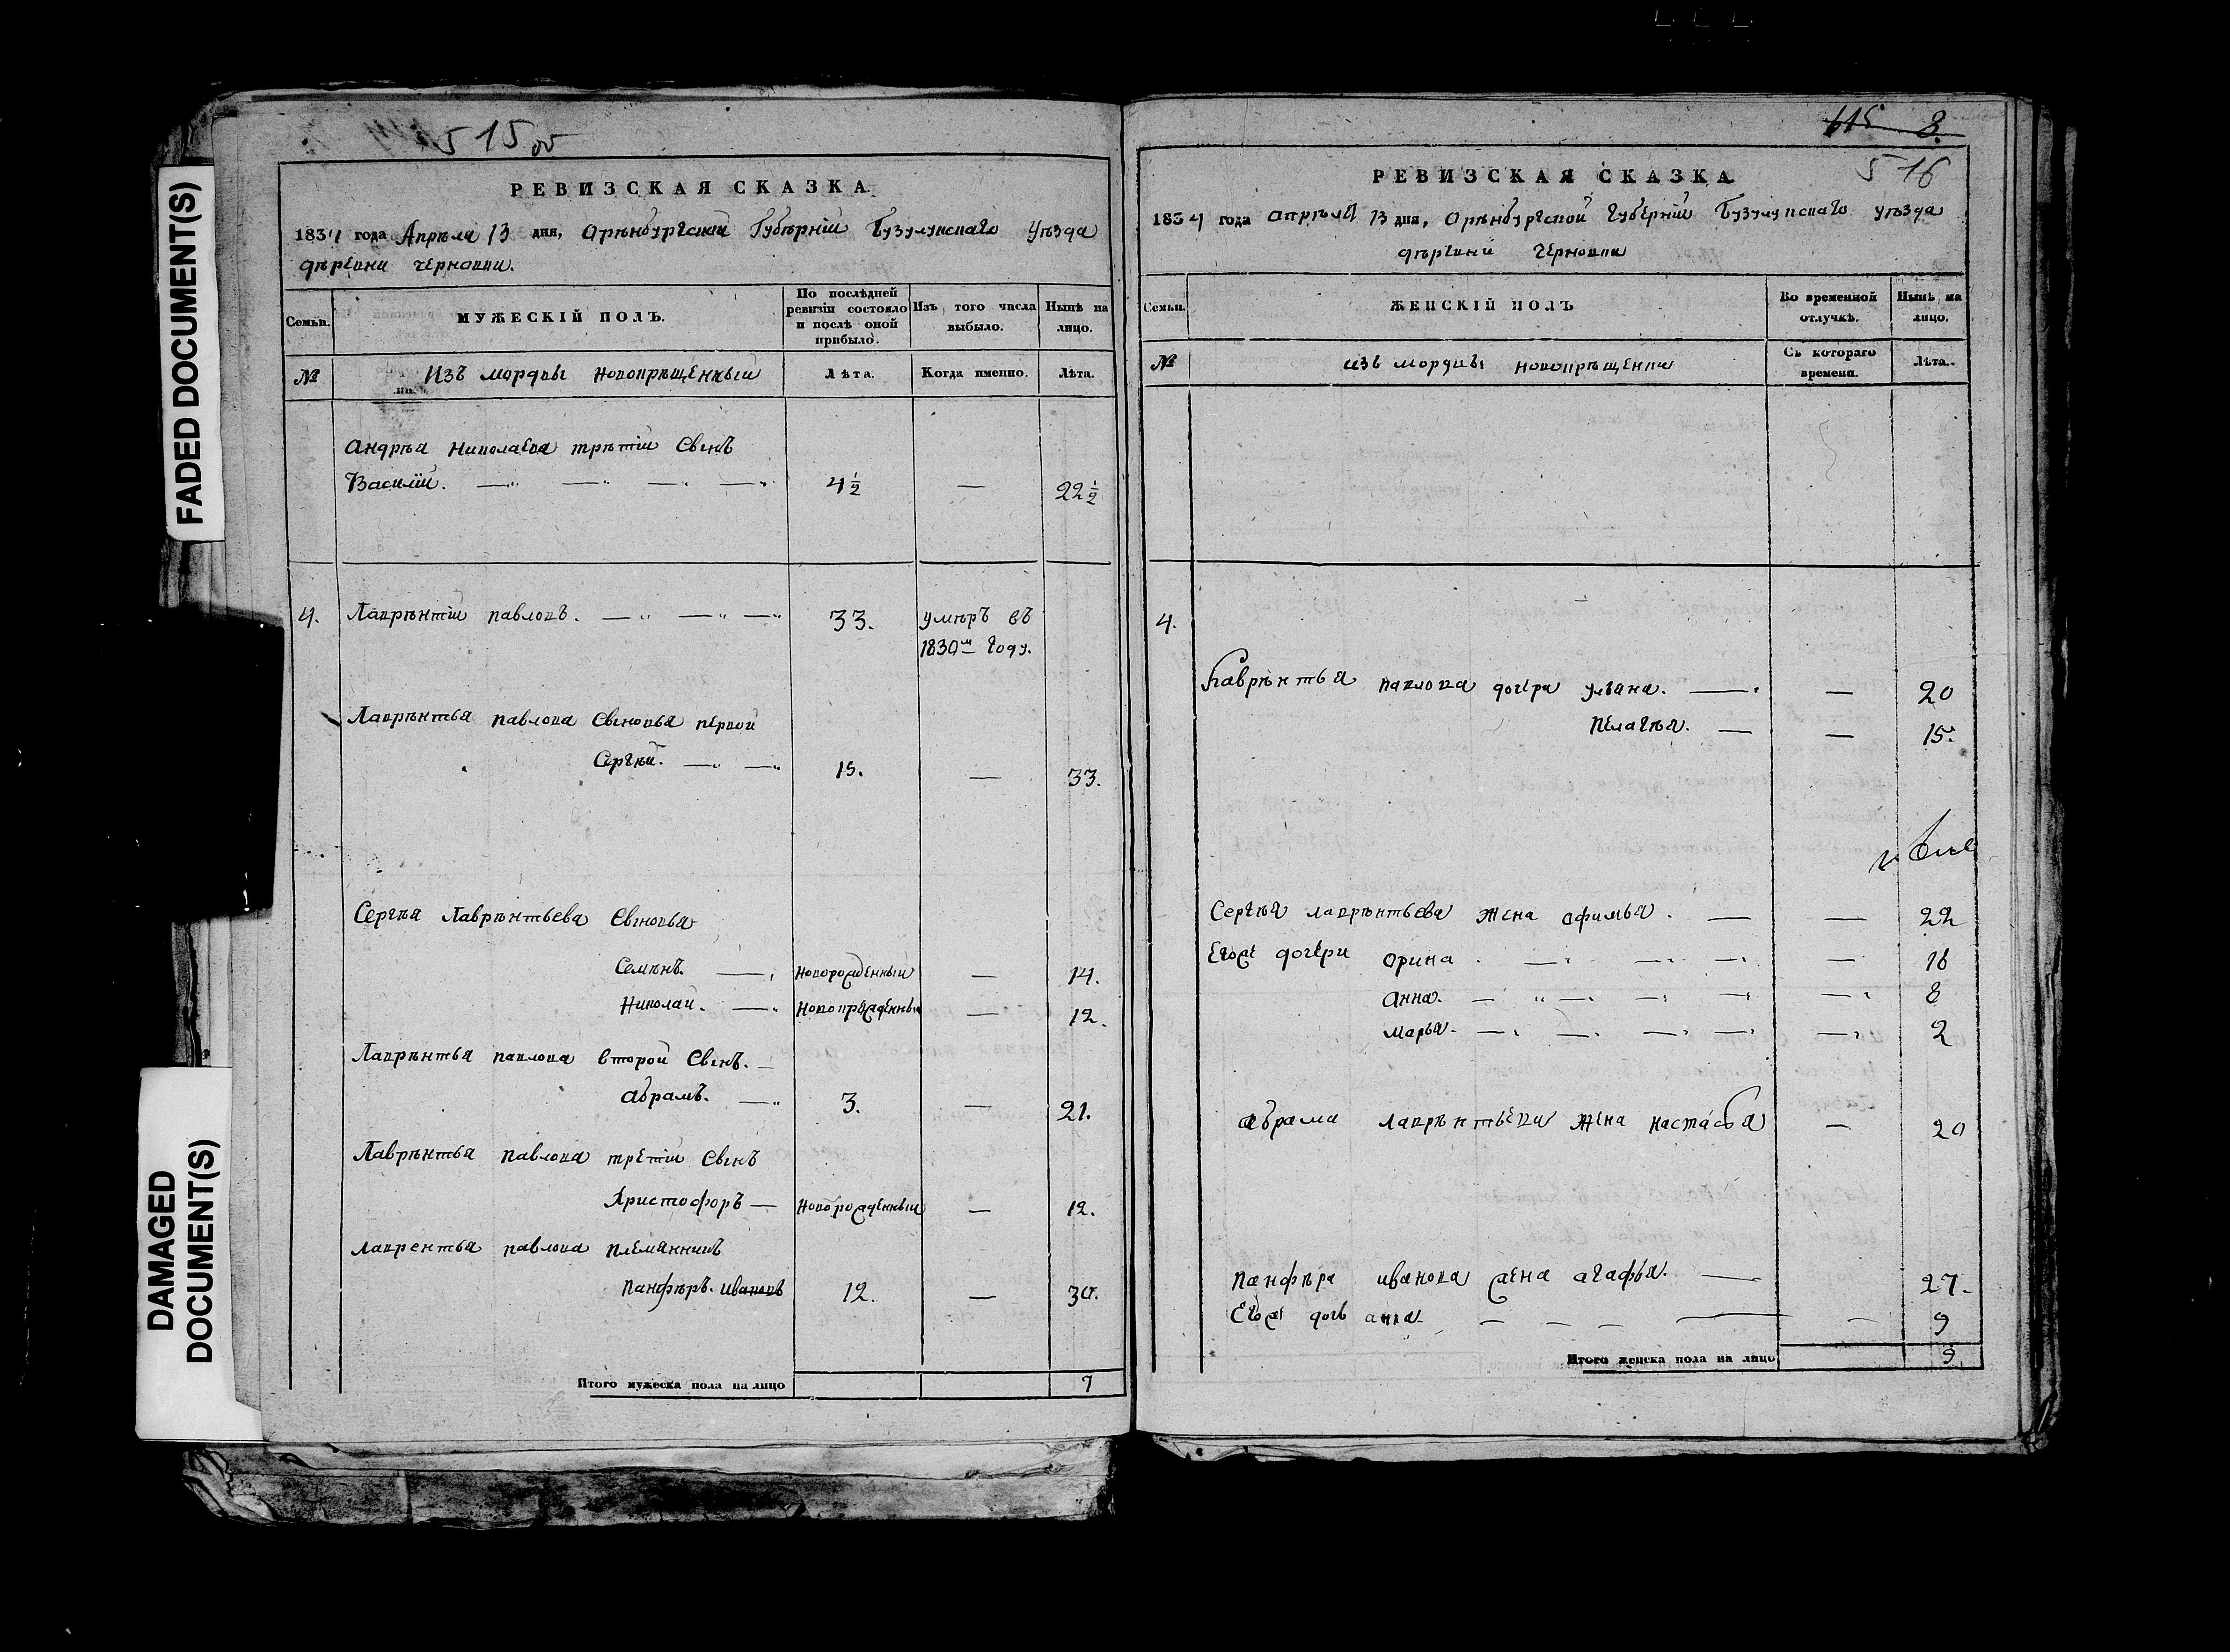 FADED DOCUMENT(S)
DAMAGED
DOCUMENT(S)
515 об
РЕВИЗСКАЯ СКАЗКА
1834 года Апрѣля 13 дня, Орѣнбургской Губѣрніи Бузулукскаго Уѣзда
дѣревни черновки.
Семьи.
МУЖЕСКІЙ ПОЛЪ.
По послѣдней ревизіи состояло и послѣ оной прибыло.
Изъ того числа выбыло.
Нынѣ на лицо.
№
Изъ мордвы новокрѣщенный
Лѣта.
Когда именно.
Лѣта.
Андрѣя Николаева трѣтій Сынъ
Василій. 4½ — 22½
4. Лаврѣнтій павловъ. 33. умѣръ въ
1830м году.
Лаврѣнтья павлова Сыновья первой
Сергѣй. 15. — 33.
Сергѣя Лаврѣнтьева Сыновья
Семѣнъ. новорожденный — 14.
Николай. — 12.
Лаврѣнтья павлова второй Сынъ. —
абрамъ. 3. — 21.
Лаврѣнтья павлова третій Сынъ
Христофоръ — новорожденный — 12.
Лаврентья павлова племянникъ
панфѣръ. ивановъ 12. — 30.
Итого мужеска пола на лицо 7
615 8.
516
РЕВИЗСКАЯ СКАЗКА
1834 года апрѣля 13 дня, Орѣнбургской губѣрніи Бузулукскаго уѣзда
дѣревни черновки
Семьи.
ЖЕНСКІЙ ПОЛЪ
Во временной отлучкѣ.
Нынѣ на лицо.
№
изъ мордвы новокрѣщенки
Съ котораго времени.
Лѣта.
4.
Лаврѣнтья павлова дочери ульяна. — — 20
пелагѣя. — — 15.
Сергѣя лаврѣнтьева жена офимья. — — 22
Егоже дочери орина — 16
анна. — 8
марья. — 2
абрама лаврѣнтьева жена настасья — 20
панфѣра иванова жена агафья. — 27.
Егоже дочь анна — 9
Итого женска пола на лицо 9